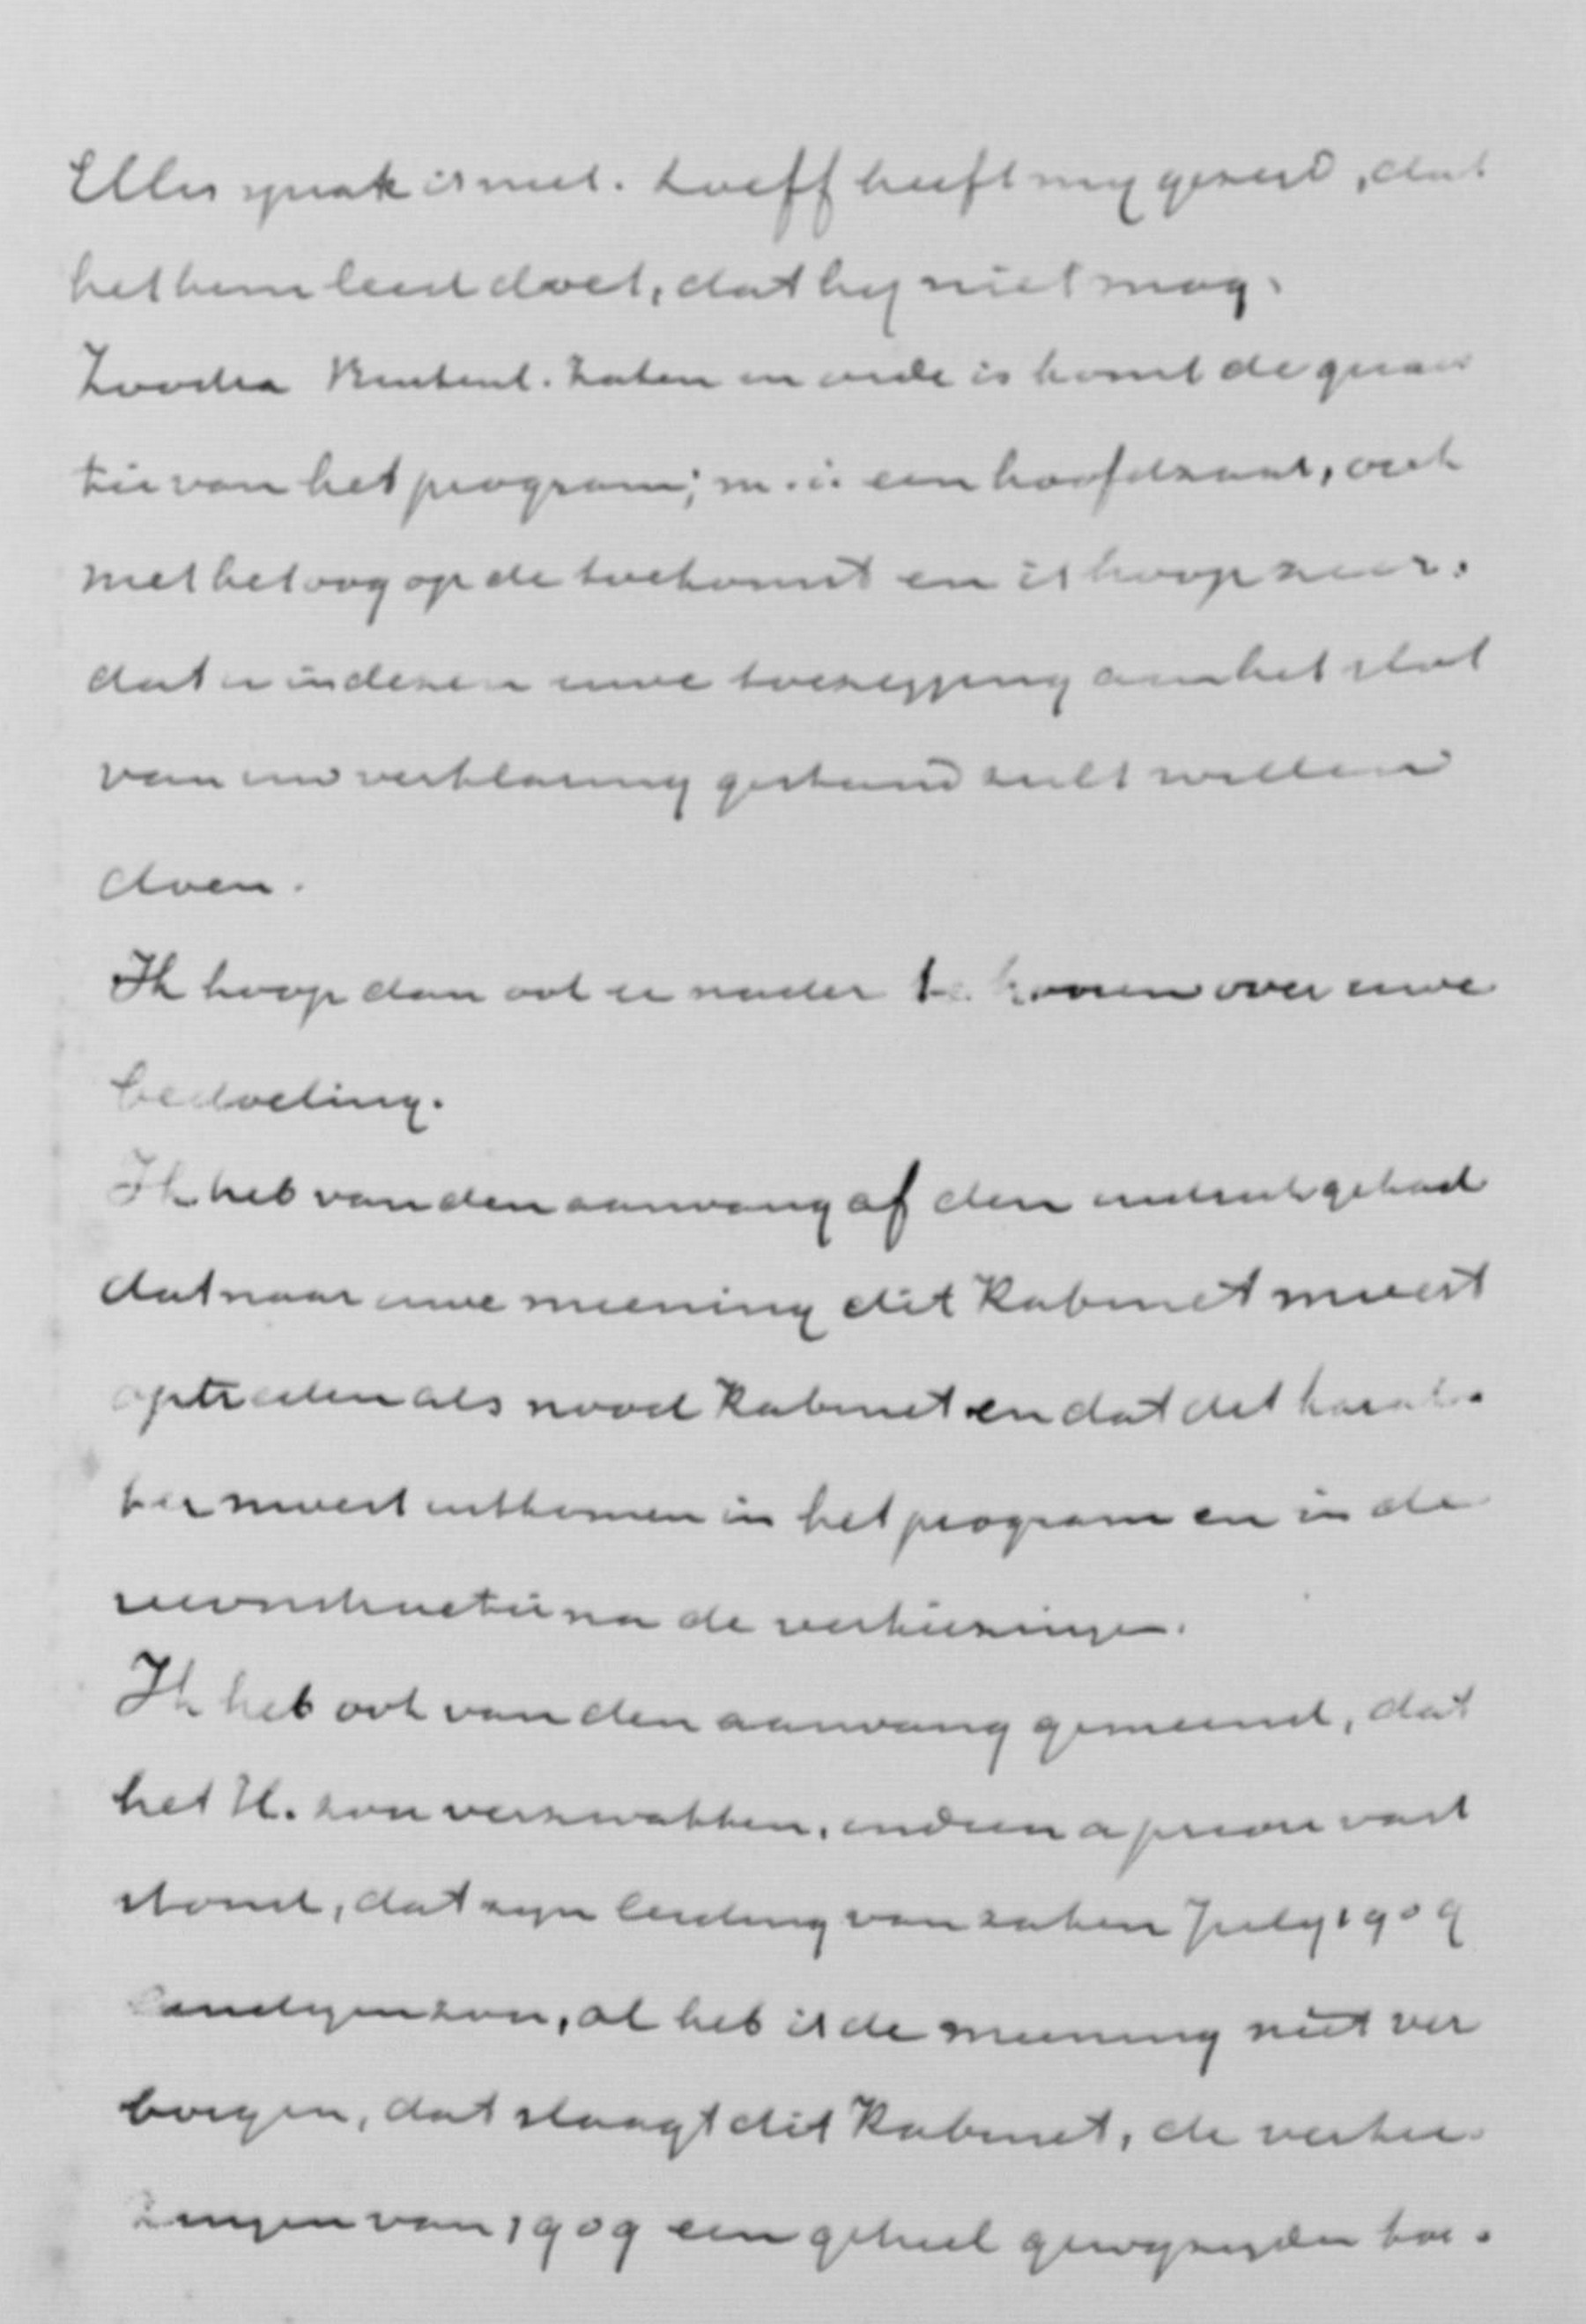 Ellis sprak ik niet. Loeff heeft my gezegd, dat
het hem leed doet, dat hy niet mag.
Zoodra Buitenl. Zaken in orde is komt de quaes
tie van het program; m.i. een hoofdzaak, ook
met het oog op de toekomst en ik hoop zeer.
dat u in dezen uwe toezegging aan het slot
van uw verklaring gestand zult willen
doen.
Ik hoop dan ook er nader te hooren over uwe
bedoeling.
Ik heb van den aanvang af den indruk gehad
dat naar uwe meening dit Kabinet moest
optreden als nood Kabinet en dat dit karak
ter moest uitkomen in het program en in de
reconstructie na de verkiezingen.
Ik heb ook van den aanvang gemeend, dat
het K. zou verzwakken, indien a priori vast
stond, dat zyn leiding van zaken July 1909
eindigen zou, al heb ik de meening niet ver
borgen, dat slaagt dit Kabinet, de verkie.
zingen van 1909 een geheel gewyzigden toe.